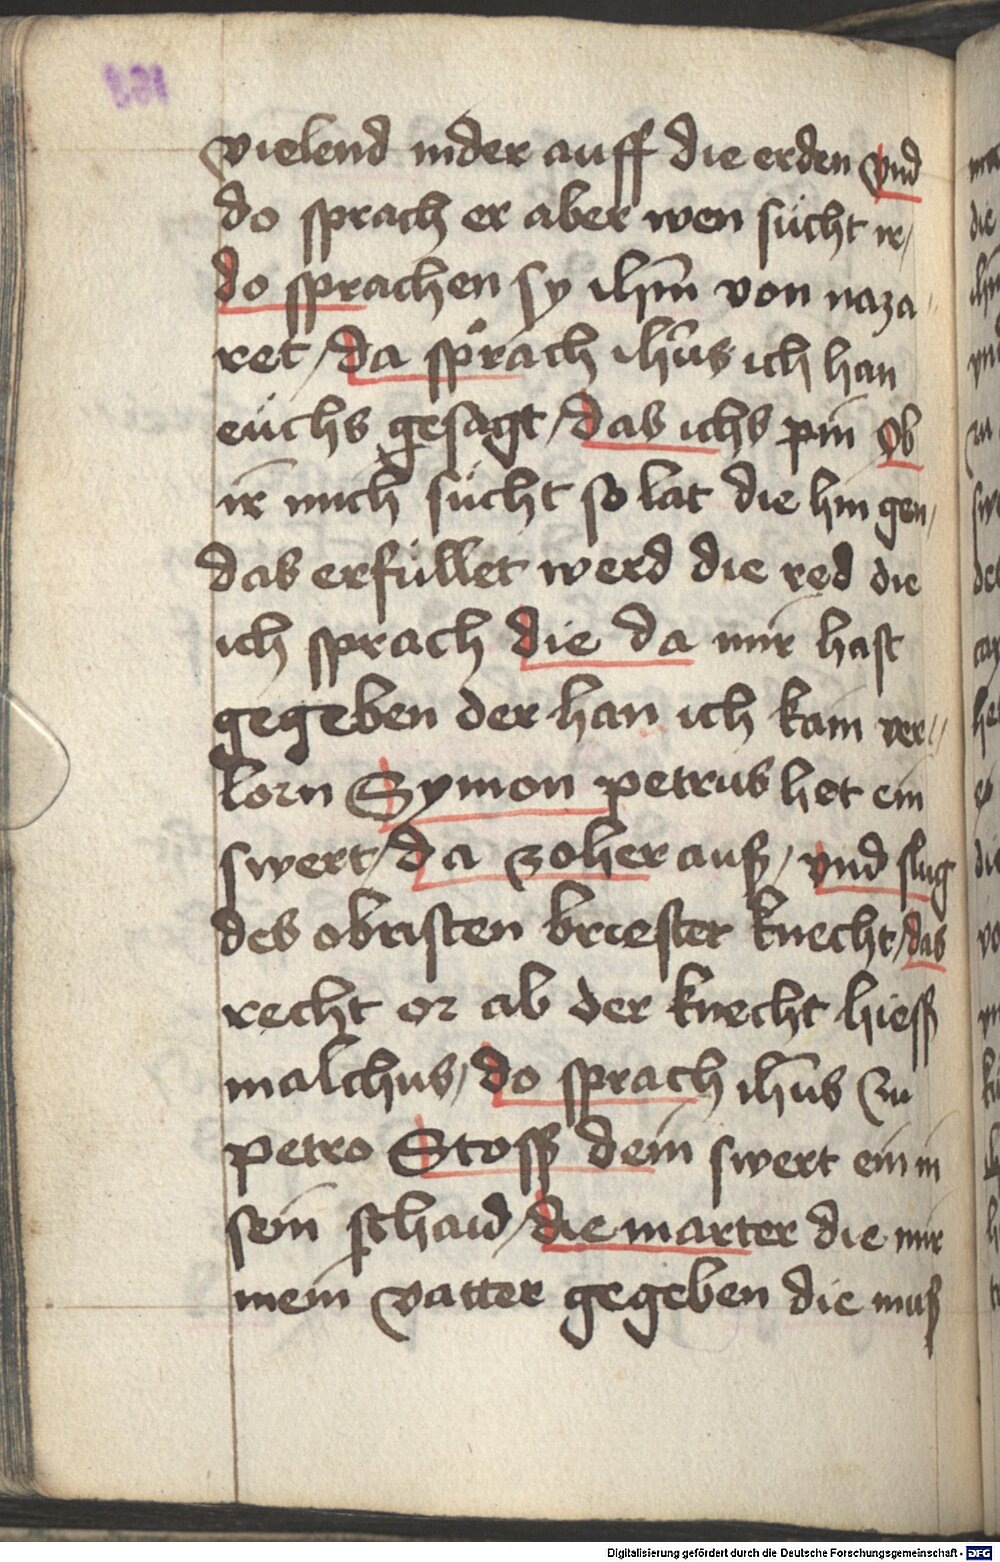 vielend nider auff die erden vnd
do sprach er aber wen sücht ir/
do sprachen sy ihm̄ von naza
ret/ da sprach ih̄us ich han
eüchs gesagt/ das ichs pin Ob
ir mich sücht so lat die hin gen/
das erfüllet werd die red die
ich sprach die da mir hast
gegeben der han ich kain ver//
lorn Symon petrus het ein
swert/ da zoher auß/ vnd slug
des obristen briester knecht/ das
recht or ab der knecht hiess
malchus/ do sprach ih̄us zu
petro Stoss dein swert ein in
sein schaid/ die marter die mir
mein vatter gegeben die muß
Digitalisierung gefördert durch die Deutsche Forschungsgemeinschaft - DFG